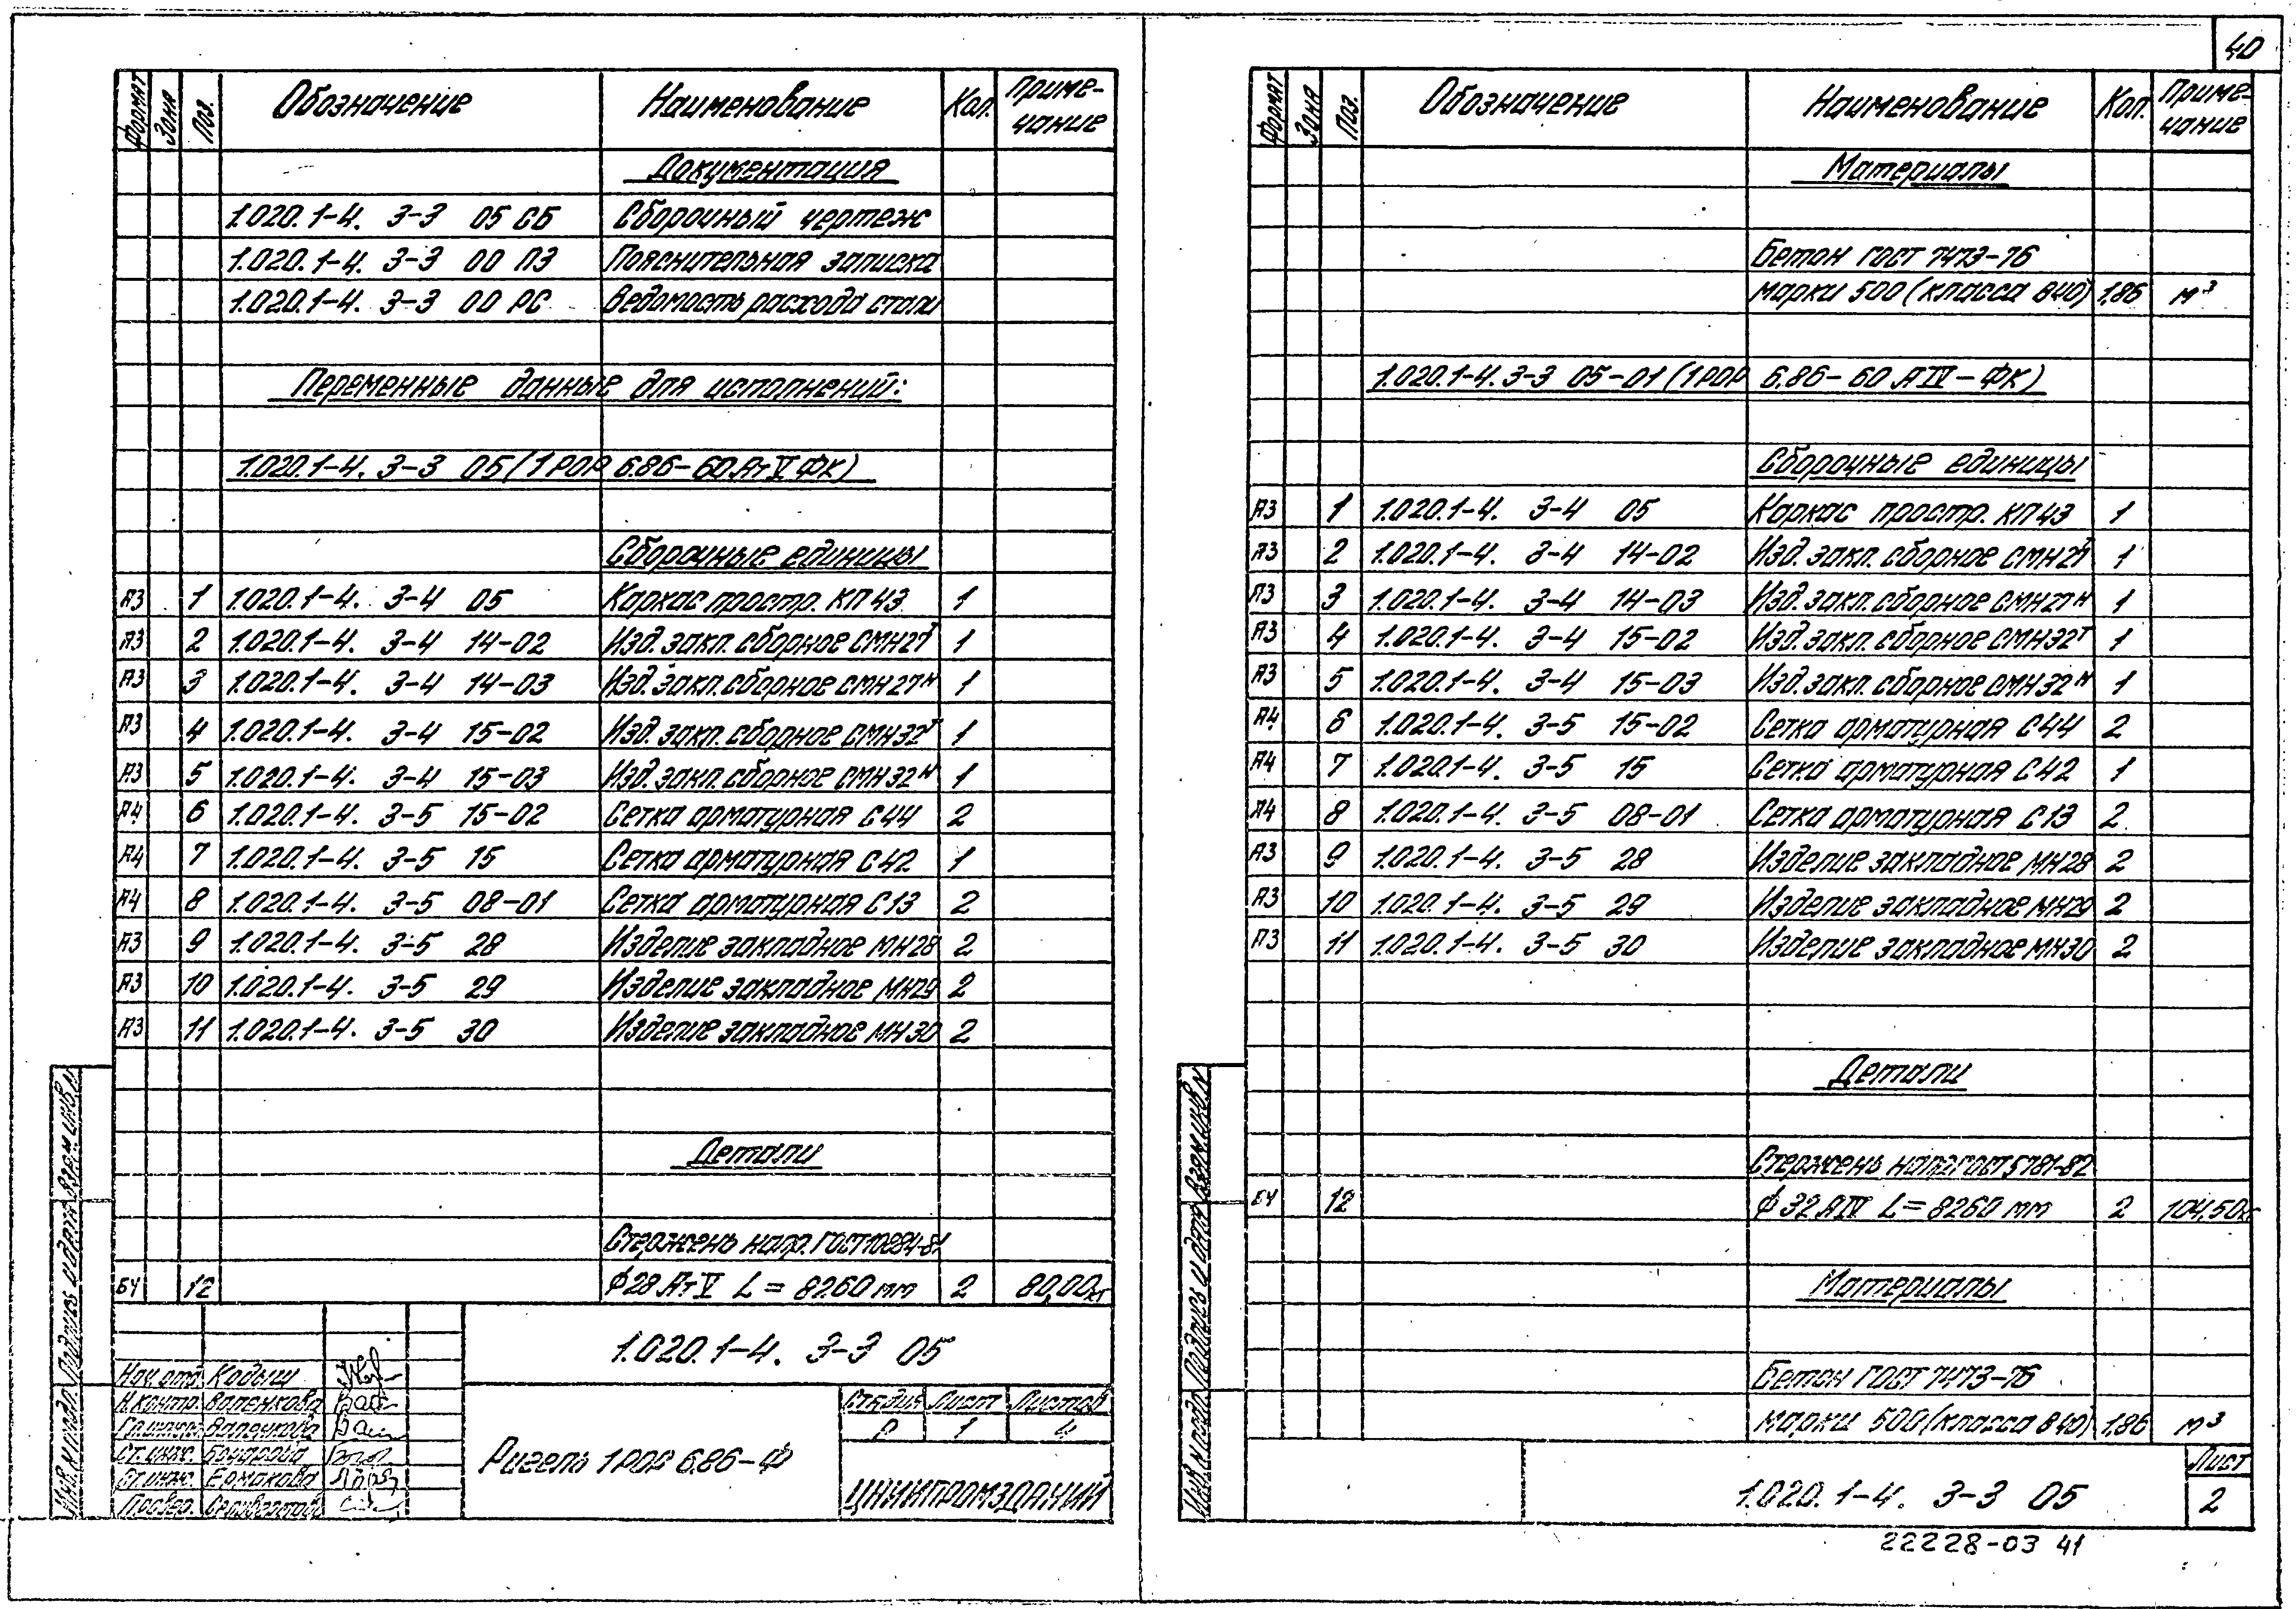 40
Формат Зона Поз. Обозначение Наименование Кол. Приме-чание
Документация
1.020.1-4. 3-3 05 СБ Сборочный чертеж
1.020.1-4. 3-3 00 ПЗ Пояснительная записка
1.020.1-4. 3-3 00 РС Ведомость расхода стали
Переменные данные для исполнений:
1.020.1-4. 3-3 05 (1РОР 6.86-60 АтV ФК)
Сборочные единицы
А3 1 1.020.1-4. 3-4 05 Каркас простр. КП43 1
А3 2 1.020.1-4. 3-4 14-02 Изд. закл. сборное СМН27т 1
А3 3 1.020.1-4. 3-4 14-03 Изд. закл. сборное СМН27н 1
А3 4 1.020.1-4. 3-4 15-02 Изд. закл. сборное СМН32т 1
А3 5 1.020.1-4. 3-4 15-03 Изд. закл. сборное СМН32н 1
А4 6 1.020.1-4. 3-5 15-02 Сетка арматурная С44 2
А4 7 1.020.1-4. 3-5 15 Сетка арматурная С42 1
А4 8 1.020.1-4. 3-5 08-01 Сетка арматурная С13 2
А3 9 1.020.1-4. 3-5 28 Изделие закладное МН28 2
А3 10 1.020.1-4. 3-5 29 Изделие закладное МН29 2
А3 11 1.020.1-4. 3-5 30 Изделие закладное МН30 2
Детали
Стержень напр. ГОСТ10884-81
БЧ 12 ϕ28 АтV L=8260 мм 2 80,00кг
Инв. № подл. Подпись и дата Взам. инв. №
1.020.1-4. 3-3 05
Нач. отд. Кодыш
Н.контр. Валенкова
Валенкова
Ст.инж. Бочарова
Ст.инж. Ермакова
Провер. Селиверстов
Ригель 1РОР 6.86-Ф
Стадия Лист Листов
Р 1 4
ЦНИИПРОМЗДАНИЙ
Формат Зона Поз. Обозначение Наименование Кол. Приме-чание
Материалы
Бетон ГОСТ 7473-76
марки 500 (класса В40) 1,86 м³
1.020.1-4. 3-3 05-01 (1РОР 6.86-60 АIV-ФК)
Сборочные единицы
А3 1 1.020.1-4. 3-4 05 Каркас простр. КП43 1
А3 2 1.020.1-4. 3-4 14-02 Изд. закл. сборное СМН27т 1
А3 3 1.020.1-4. 3-4 14-03 Изд. закл. сборное СМН27н 1
А3 4 1.020.1-4. 3-4 15-02 Изд. закл. сборное СМН32т 1
А3 5 1.020.1-4. 3-4 15-03 Изд. закл. сборное СМН32н 1
А4 6 1.020.1-4. 3-5 15-02 Сетка арматурная С44 2
А4 7 1.020.1-4. 3-5 15 Сетка арматурная С42 1
А4 8 1.020.1-4. 3-5 08-01 Сетка арматурная С13 2
А3 9 1.020.1-4. 3-5 28 Изделие закладное МН28 2
А3 10 1.020.1-4. 3-5 29 Изделие закладное МН29 2
А3 11 1.020.1-4. 3-5 30 Изделие закладное МН30 2
Детали
Стержень напр. ГОСТ 5781-82
БЧ 12 ϕ32 АIV L=8260 мм 2 104,50кг
Материалы
Бетон ГОСТ 7473-76
марки 500 (класса В40) 1,86 м³
Инв. № подл. Подпись и дата Взам. инв. №
1.020.1-4. 3-3 05
Лист
2
22228-03 41